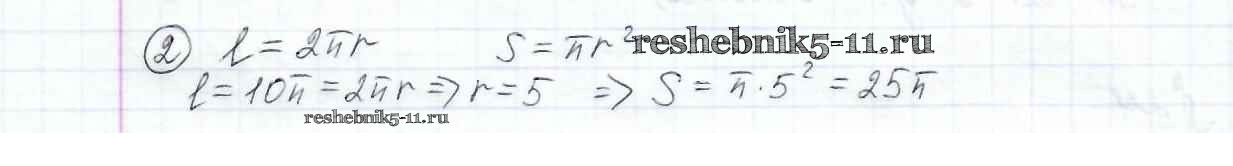 ② l = 2πr S = πr² reshebnik5-11.ru
l = 10π = 2πr => r = 5 => S = π · 5² = 25π
reshebnik5-11.ru